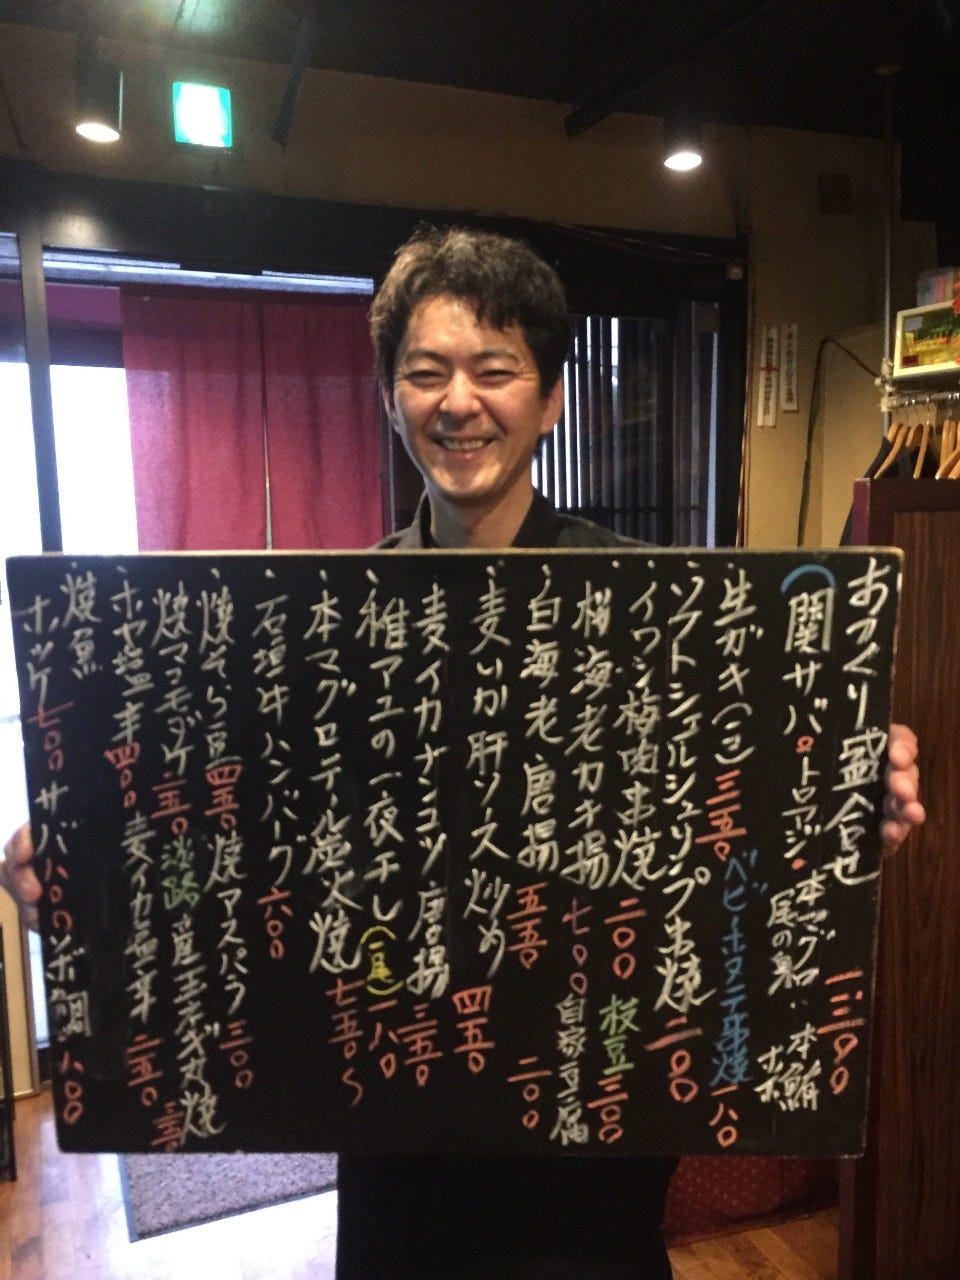 おつくり盛合せ 一三〇〇
(関サバ・トロアジ・本マグロ
尾の身、本鮪ホホ
生ガキ(一ヶ)三五〇 ベビーホタテ串焼 一八〇
ソフトシェルシュリンプ串焼 二〇〇
イワシ梅肉串焼 二〇〇 枝豆 三〇〇
桜海老カキ揚 七〇〇 自家豆腐 二〇〇
白海老唐揚 五五〇
麦いか肝ソース炒め 四五〇
麦イカナンコツ唐揚 三五〇
稚アユの一夜干し(一尾)一八〇
本マグロテール塩火焼 七五〇〜
石垣牛ハンバーグ 六〇〇
焼そら豆 四五〇 焼アスパラ 三〇〇
焼マモダケ 二五〇 淡路産玉ネギ丸焼
ホヤ塩辛 四〇〇 麦イカ塩辛 二五〇
焼魚
ホッケ 七〇〇 サバ 八〇〇 ボ鯛 八〇〇